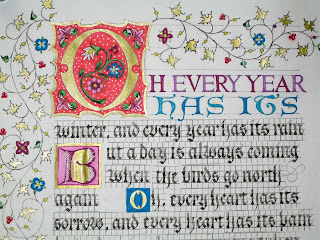 OH EVERY YEAR
HAS ITS
winter, and every year has its rain
But a day is always coming
when the birds go north
again Oh, every heart has its
sorrows, and every heart has its pain